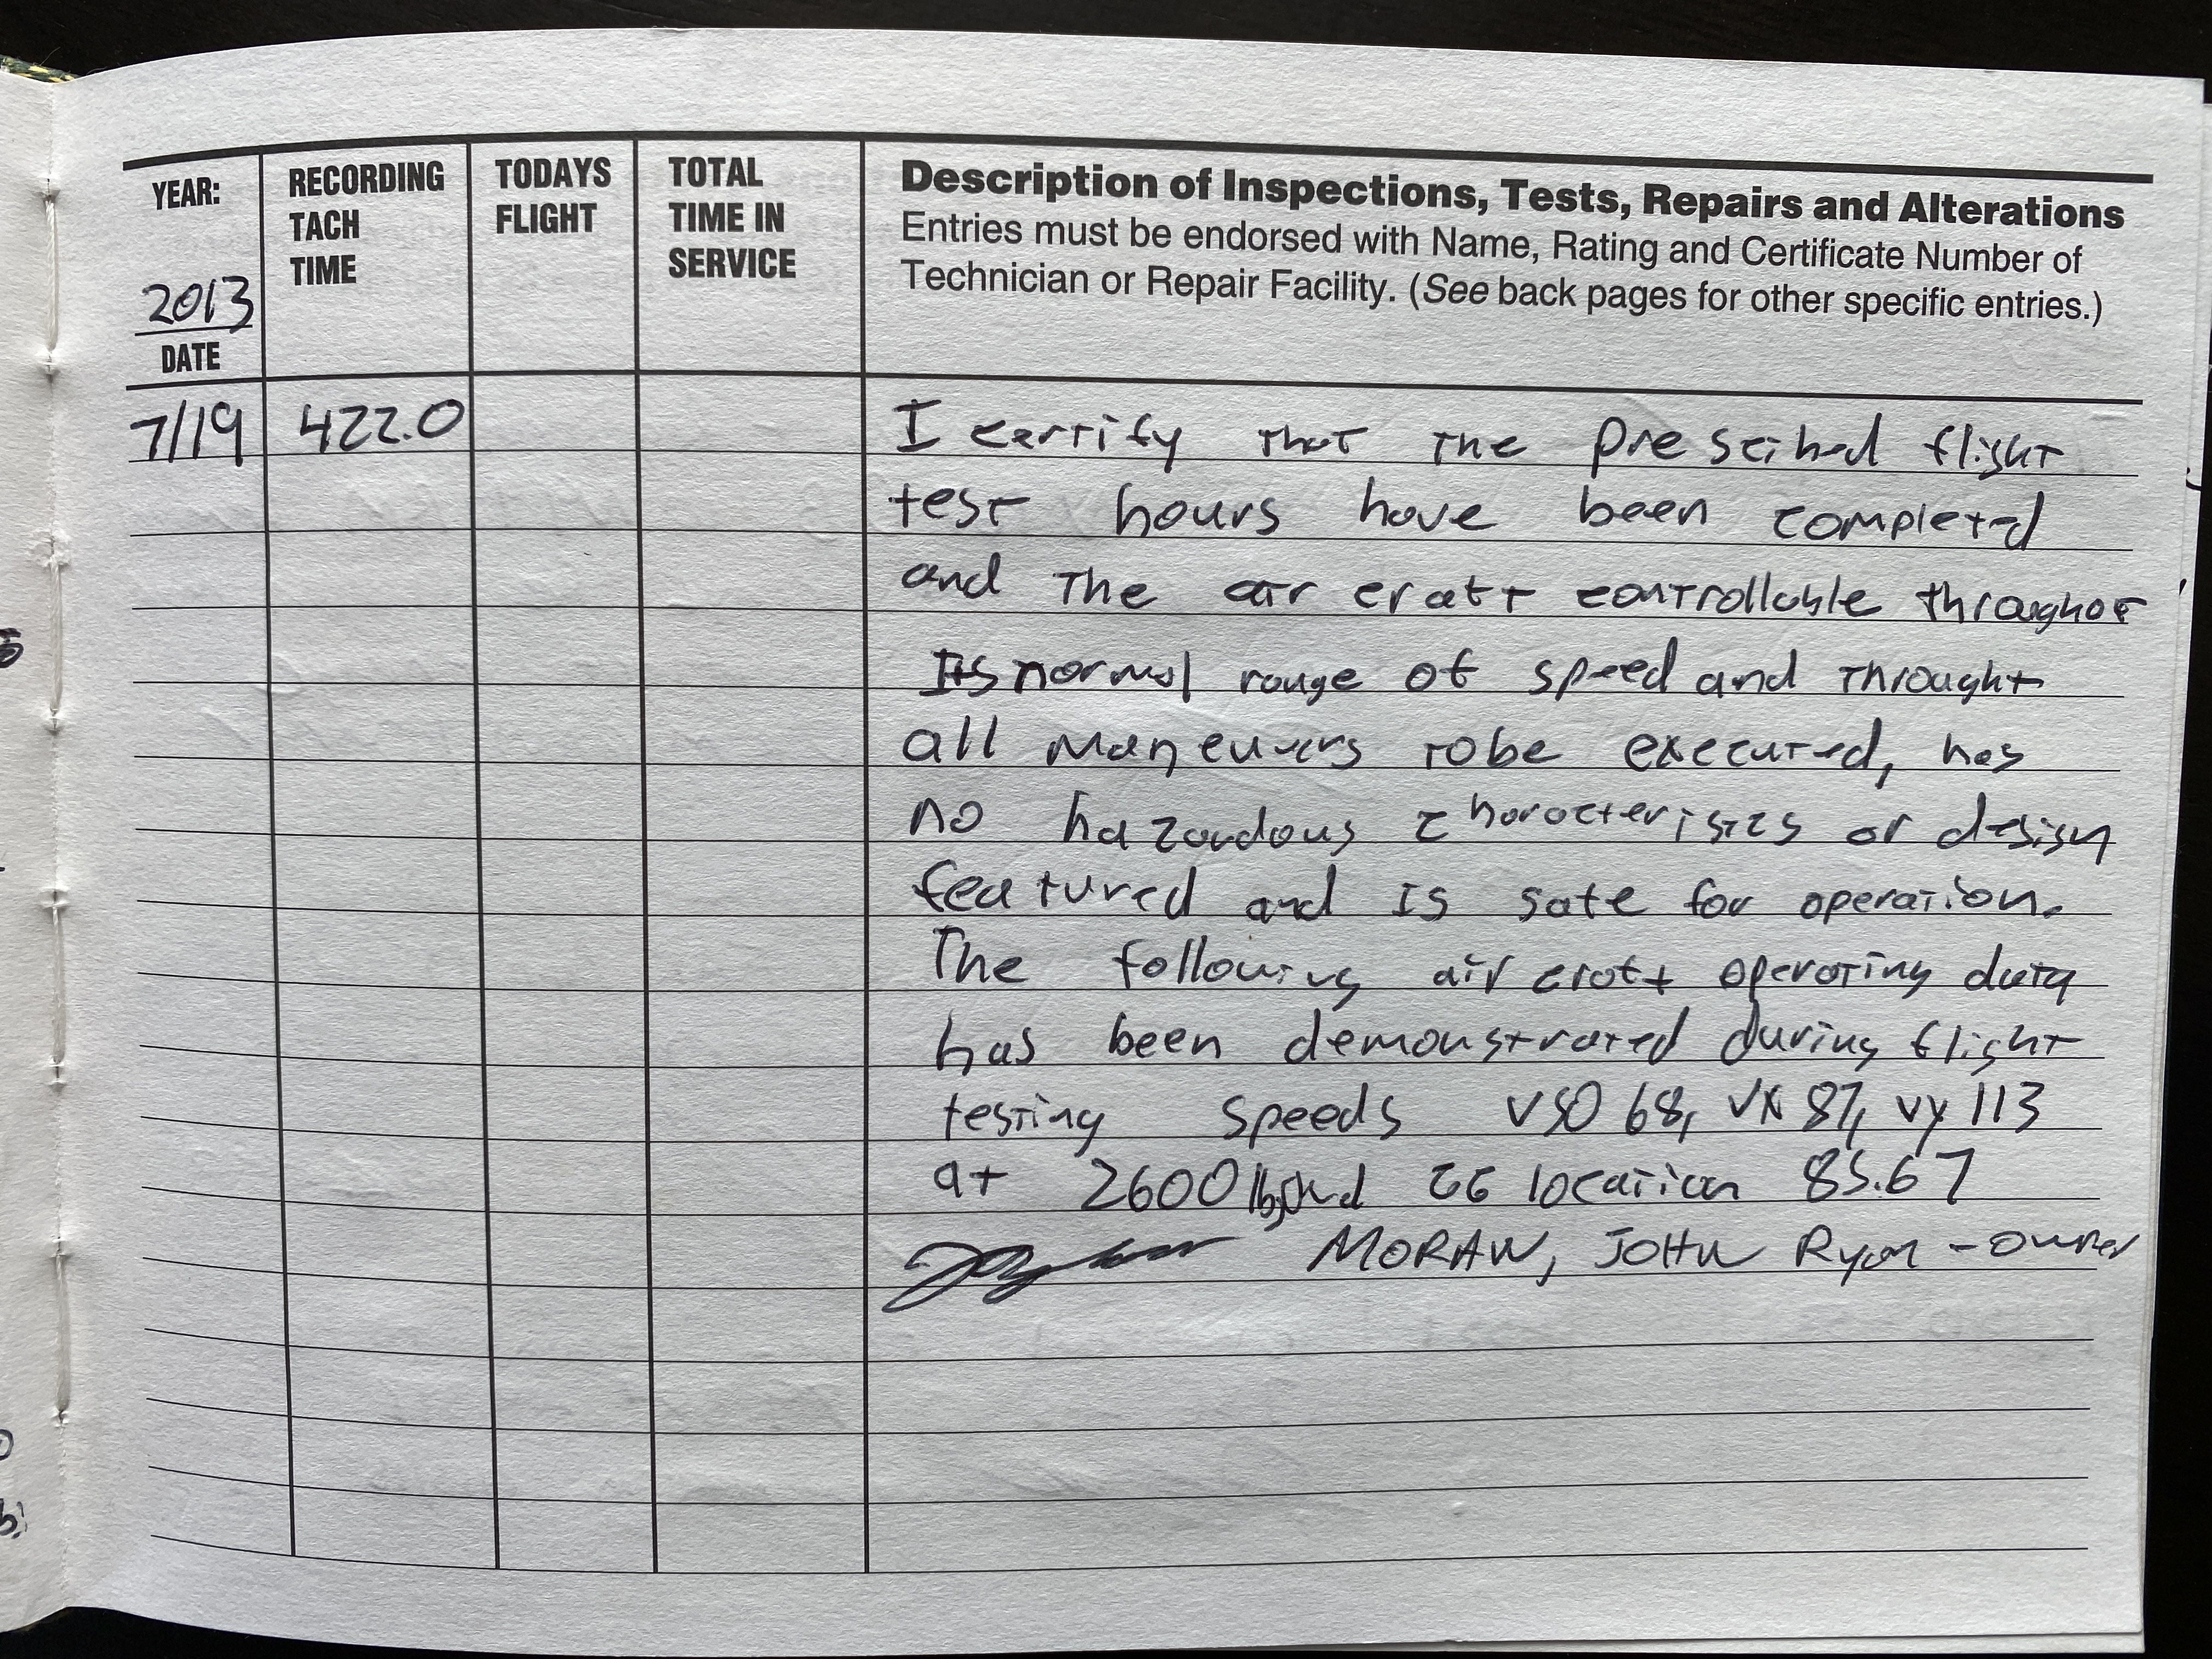 YEAR:
2013
DATE
RECORDING
TACH
TIME
TODAYS
FLIGHT
TOTAL
TIME IN
SERVICE
Description of Inspections, Tests, Repairs and Alterations
Entries must be endorsed with Name, Rating and Certificate Number of
Technician or Repair Facility. (See back pages for other specific entries.)
7/19 422.0 I certify that the prescibed flight
test hours have been completed
and the air craft controllable throughot
Its normal range of speed and throught
all maneuvers to be executed, has
no hazardous characteristics or design
featured and is safe for operation.
The following air craft operating data
has been demonstrated during flight
testing speeds VSO 68, VX 87, VY 113
at 2600 lbs CG location 85.67
MORAN, JOHN Ryan - owner